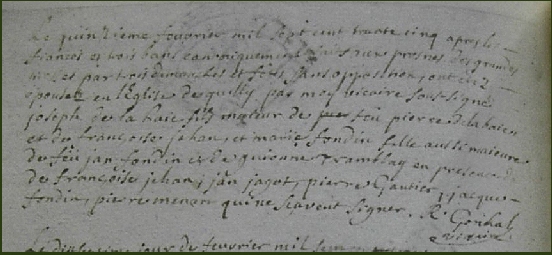 Le quinzieme fevrier mil sept cent trante cinq apres les
fiances et trois bans canoniquement faits aux prosnes des grandes
messes par trois dimanches et fetes sans opposition ont été
epousez en l'Eglise de quilly par moy vicaire sous-signé
joseph de la haie fils mateur de feu pierre delahaie
et de françoise jehan, et marie fondin fille aussi maieure
de feu jan fondin et de guionne tramblay en presence
de françoise jehan, jan jagot, pierre Gautier, jacque
fondin, pierre menant qui ne scavent signer. R.
vicaire
Le dixieme jour de fevrier mil sept